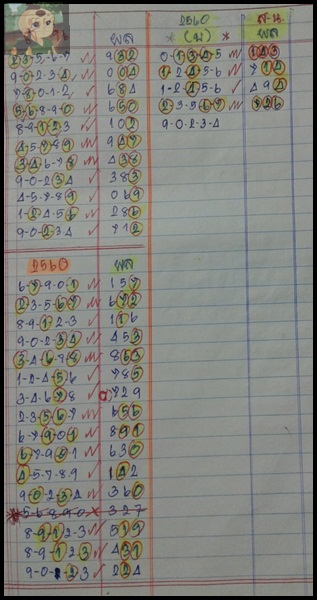 ผล
2-3-5-6-7 932
9-0-2-3-4 004
7-8-0-1-2 684
5-6-8-9-0 650
8-9-1-2-3 102
4-5-7-8-9 947
3-4-6-7-8 438
9-0-2-3-4 383
4-5-7-8-9 069
1-2-4-5-6 286
9-0-2-3-4 712
2560 ผล
6-7-9-0-1 157
2-3-5-6-7 672
8-9-1-2-3 116
9-0-2-3-4 453
3-4-6-7-8 864
1-2-4-5-6 785
3-4-6-7-8 729
2-3-5-6-7 656
6-7-9-0-1 891
6-7-9-0-1 630
4-5-7-8-9 142
9-0-2-3-4 360
*5-6-8-9-0 × 327
8-9-1-2-3 519
8-9-1-2-3 431
224
2560
* (ม) * ผล
0-1-3-4-5 143
1-2-4-5-6 714
1-2-4-5-6 494
2-3-5-6-7 726
9-0-2-3-4